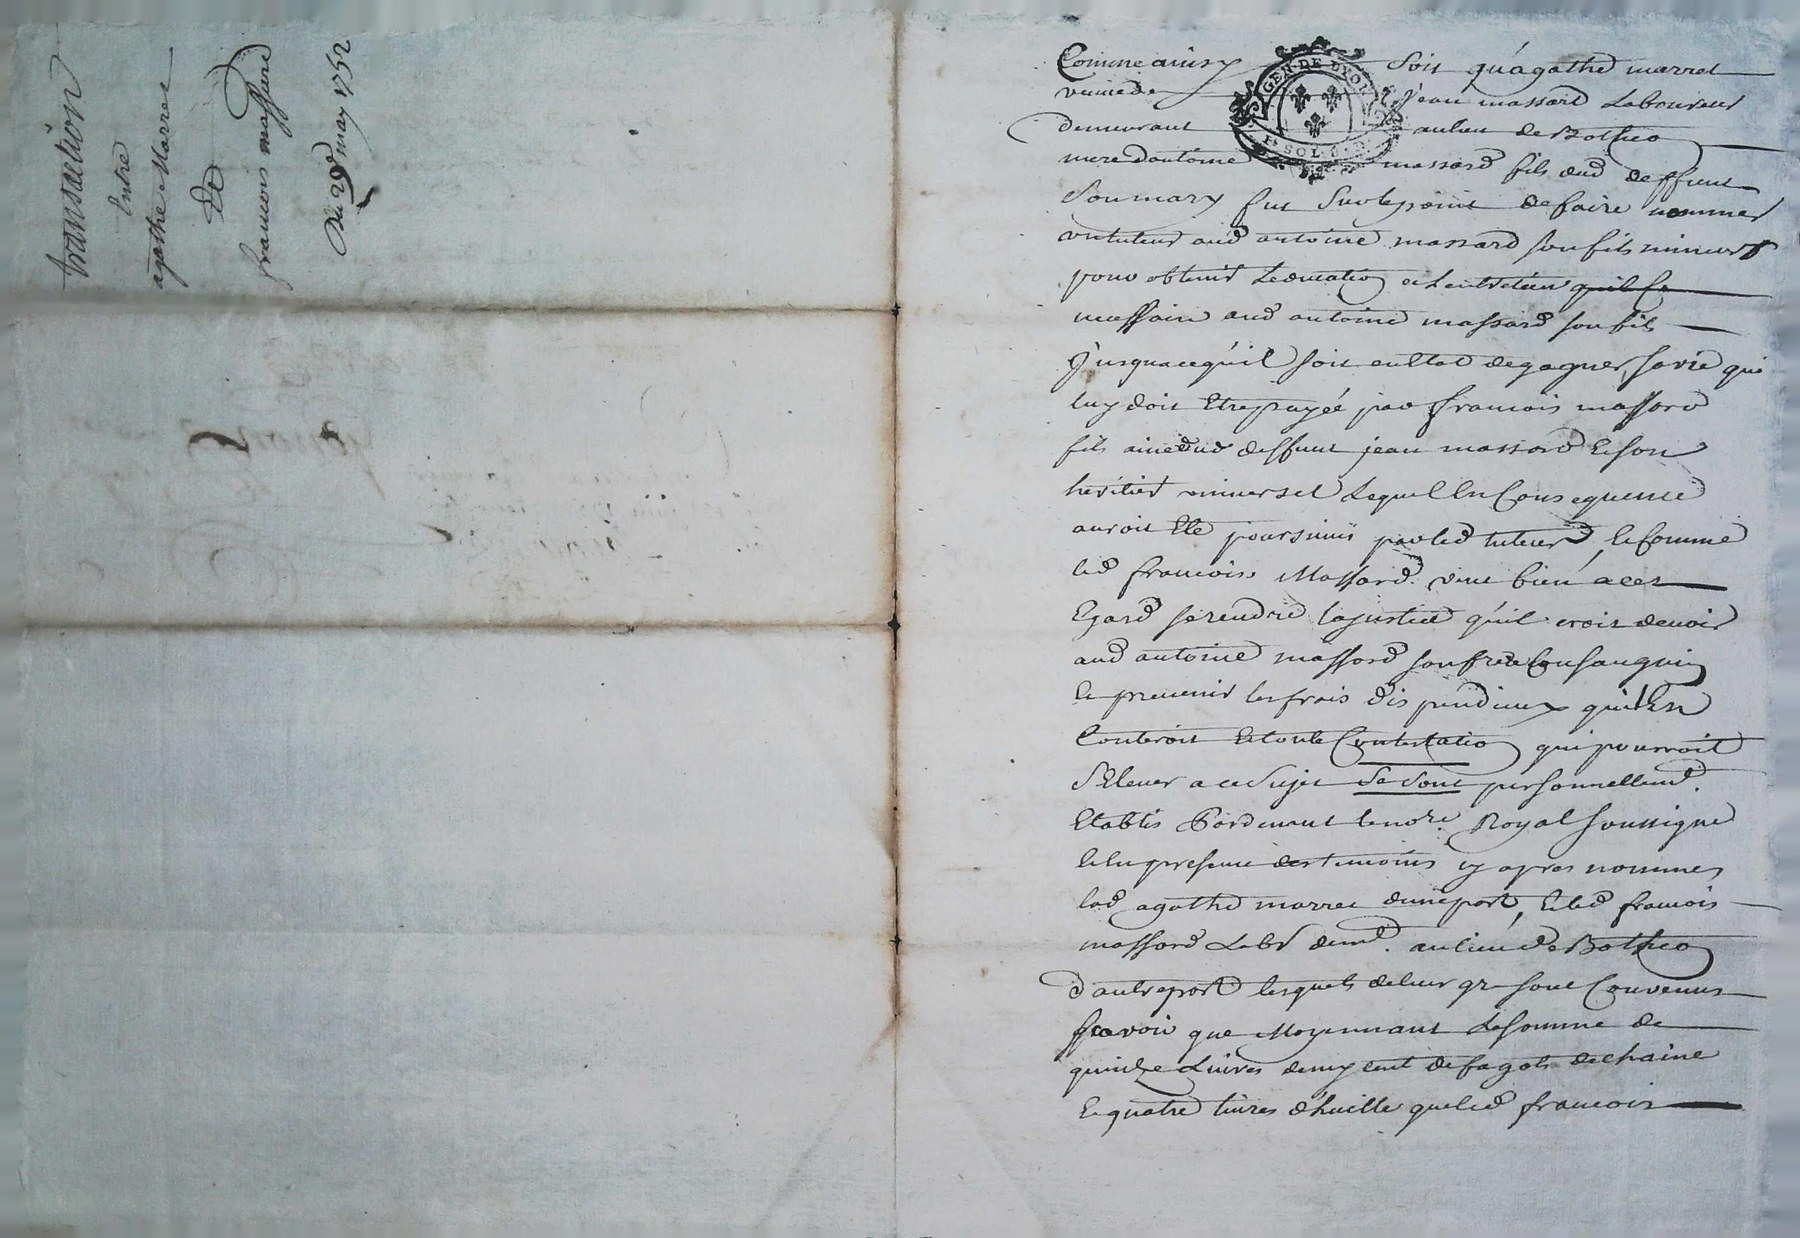 transaction
Entre
agathe Marrel
Et
francois massard
Du 29 may 1752
GEN · DE · LYON
SOL
Comme ainsy soit qu'agathe marrel
veuve de jean massard Laboureur
demeurant au lieu de Botheo
mere d'antoine massard fils dud deffunt
Son mary fut Sur le point de faire nommer
un tuteur aud antoine massard son fils mineur
pour obtenir Leducation et Lentretien
necessaire aud antoine massard son fils
Jusqua ce qu'il soit en Etat de gagner sa vie qui
luy doit Etre payée par francois massard
fils ainé dud deffunt jean massard et son
heritier universel Lequel En Consequence
auroit Eté poursuivi par led tuteur, et Comme
led francois Massard veut bien a cet
Egard se rendre la justice qu'il croit devoir
aud antoine massard son frere Consanguin
et prevenir les frais dispendieux qu'il En
Couteroit et toute Contestation qui pourroit
S'Elever a ce Sujet Se Sont personnellemt.
Etablis Pardevant le nore. Royal soussigné
et En presence des temoins cy apres nommes
lad agathe marrel d'une part, et led francois
massard Labr demt. au lieu de Botheo
d'autre part lesquels de leur gré sont Convenus
scavoir que Moyennant La somme de
quinze Livres demy cent de fagots de chaine
et quatre livres d'huille que led francois